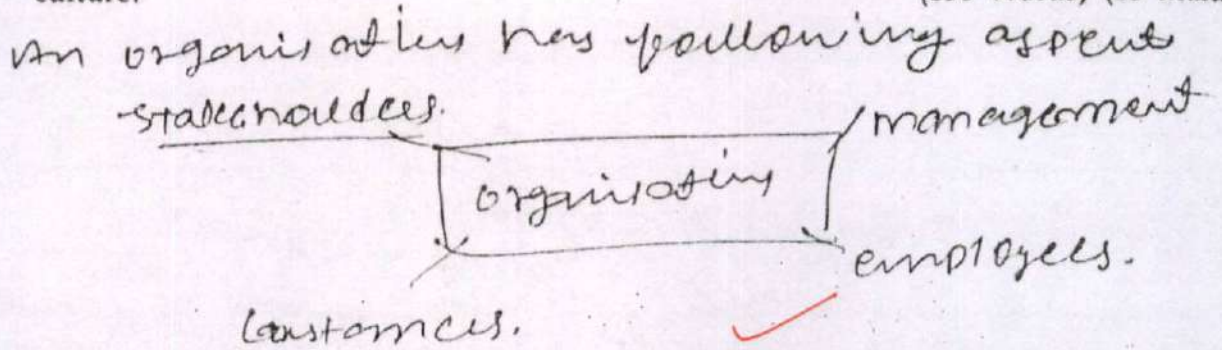 culture.
An organisation has following aspects
stakeholders.
management
organisation
employees.
customers.